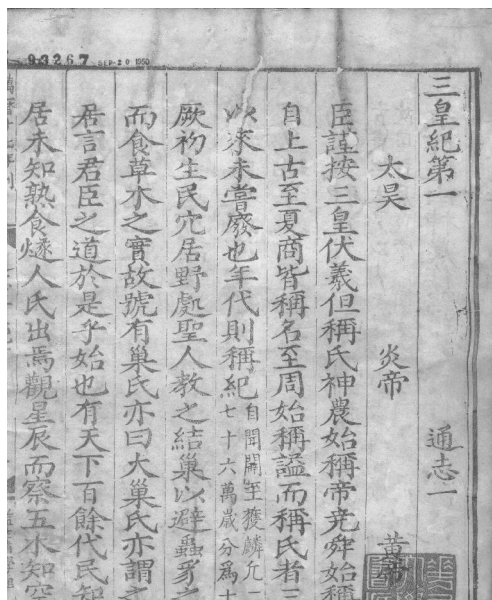 93267 SEP-20 1950
三皇紀第一 通志一
太昊 炎帝 黃帝
臣謹按三皇伏羲但稱氏神農始稱帝堯舜始稱
自上古至夏商皆稱名至周始稱諡而稱氏者三
以來未嘗廢也年代則稱紀自開闢至獲麟凢二
七十六萬歲分爲十
厥初生民穴居野處聖人教之結巢以避蟲豸之
而食草木之實故號有巢氏亦曰大巢氏亦謂之
君言君臣之道於是乎始也有天下百餘代民智
居未知熟食燧人氏出焉觀星辰而察五木知空